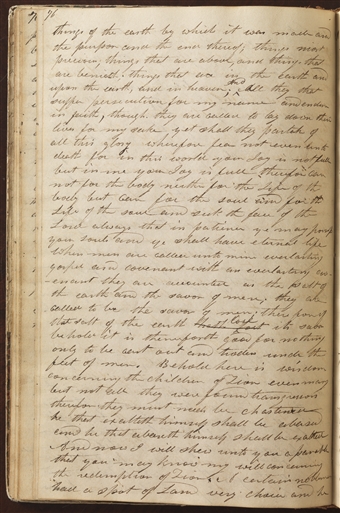 76
things of the earth by which it was made and
the purpose and the end thereof things most
precious things that are above, and things that
are beneath, things that are in the earth and
upon the earth, and in heaven, and all they that
suffer persecution for my name and endure
in faith, though they are called to lay down their
lives for my sake yet shall they partake of
all this glory wherefore fear not even unto
death for in this world your Joy is not full
but in me your Joy is full therefore care
not for the body neither for the Life of the
body but care for the soul and for the
Life of the soul and seek the face of the
Lord always that in patience ye may possess
your souls and ye shall have eternal life
When men are called unto mine everlasting
gospel and covenant with an everlasting cov
enant they are accounted as the salt of
the earth and the savor of men, they are
called to be the savor of men; therefore if
that salt of the earth lost its savor
behold it is thenceforth good for nothing
only to be cast out and troden under the
feet of men. Behold here is wisdom
concerning the children of Zion even many
but not all they were found transgressors
therefore they must needs be chastened
he that exalteth himself shall be abased
and he that abaseth himself shall be exalted
And now I will shew unto you a parable
that you may know my will concerning
the redemption of Zion. A certain nobleman
had a spot of Land very choice and he